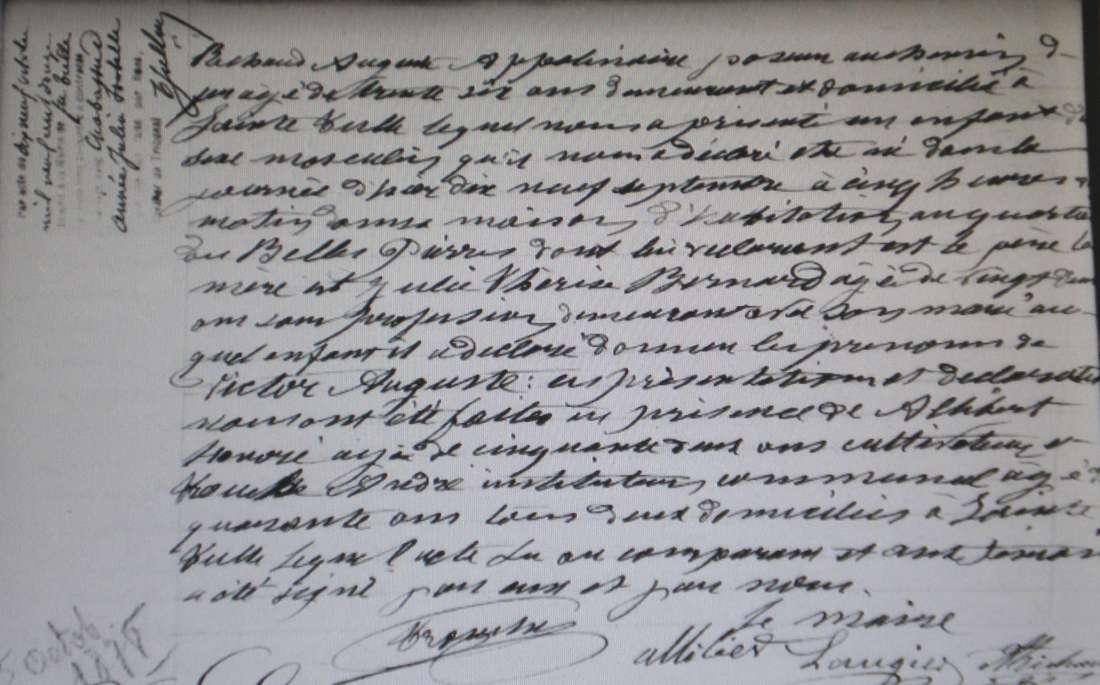 Auguste Appolinaire poseur au chemin d
agé de trente six ans demeurant et domicilié à
Sainte Tulle lequel nous a présenté un enfant du
sexe masculin qu'il nous a déclaré etre né dans la
journée d'hier dix neuf septembre à cinq heures du
matin dans sa maison d'habitation au quartier
des Belles Pierres dont lui declarant est le père la
mère est Julie Thérèse Bernard agée de vingt deux
ans sans profession demeurant avec son mari au-
quel enfant il a déclaré donner les prénoms de
Victor Auguste : ces présentation et déclaration
nous ont été faites en présence de Allibert
Honoré agé de cinquante deux ans cultivateur et
André instituteur communal agé de
quarante ans tous deux domiciliés à Sainte
Tulle lequel acte lu au comparant et aux temoins
a été signé par eux et par nous.
le maire
Allibert Laugier
mil neuf cent
à Ste Tulle
année Julie
5 Octob